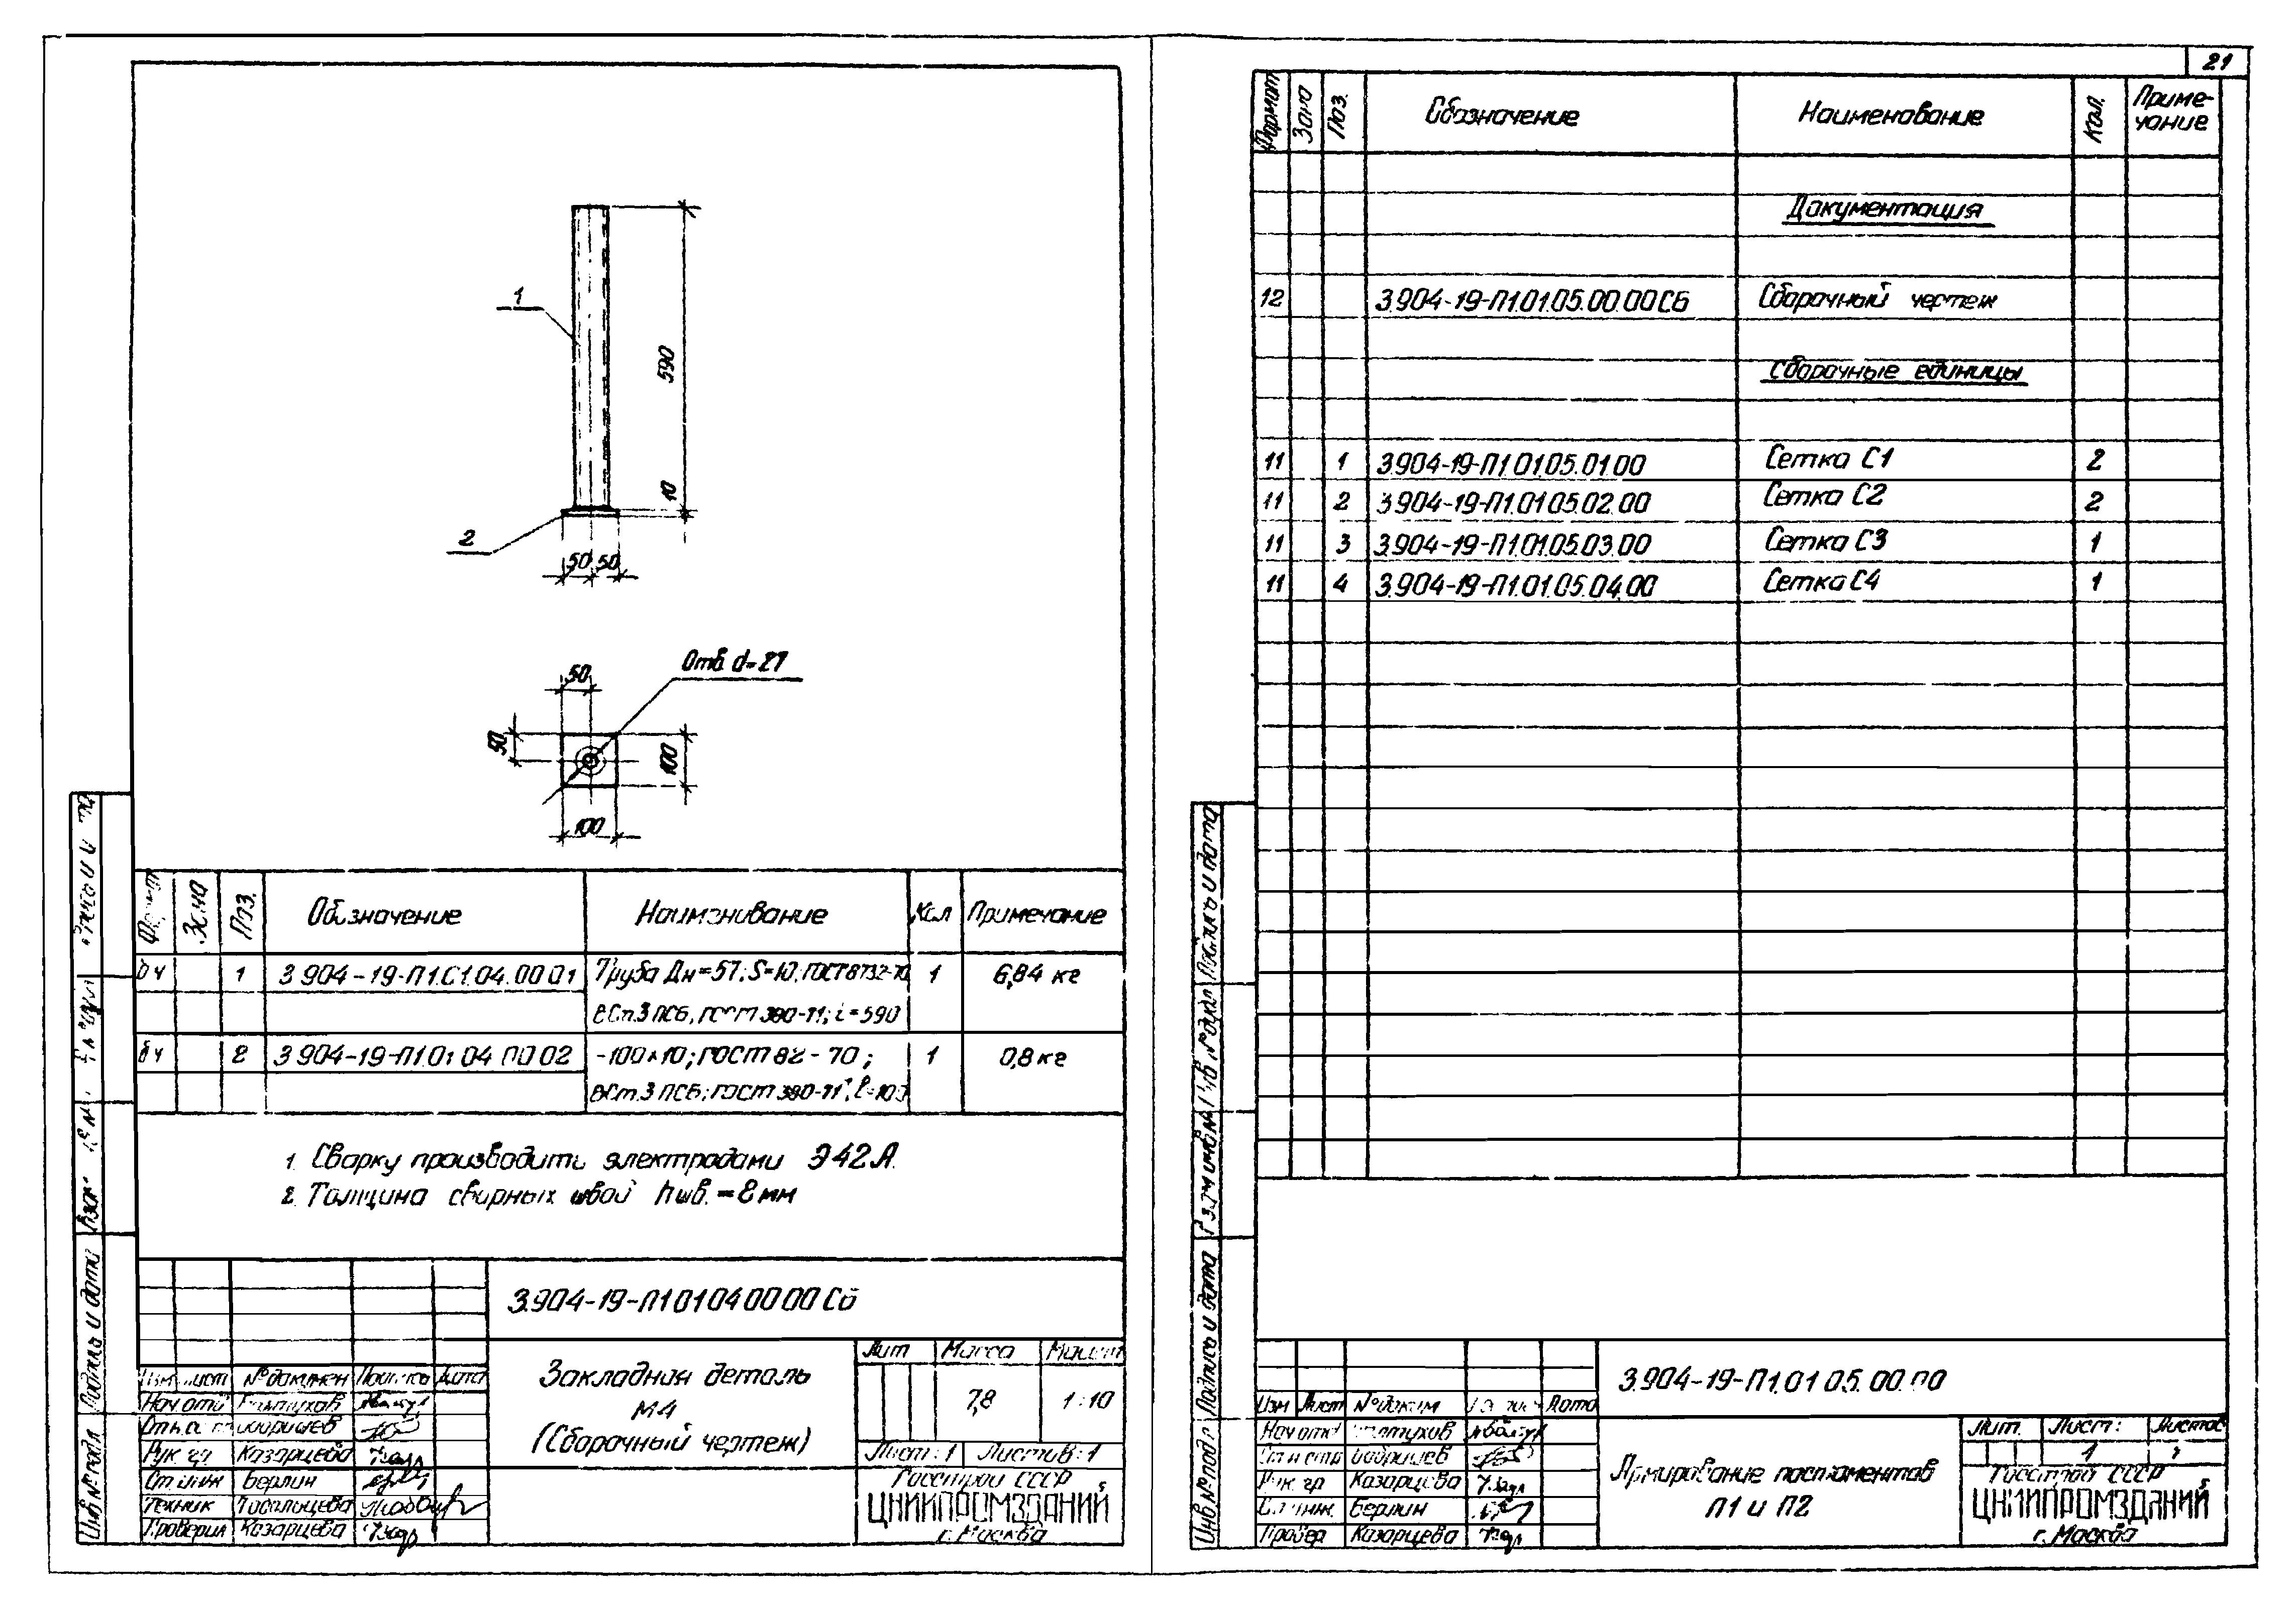 21
1
590
10
2
50 50
Отв d=27
50
50
100
100
Зона Поз. Обозначение Наименование Кол Примечание
бч 1 3.904-19-П1.01.04.00.01 Труба Дн=57; S=10; ГОСТ 8732-70 1 6,84 кг
ВСт.3 ПС6, ГОСТ 380-71; L=590
бч 2 3.904-19-П1.01.04.00.02 -100×10; ГОСТ 82-70; 1 0,8 кг
ВСт.3 ПС6; ГОСТ 380-71; ℓ=100
1. Сварку производить электродами Э42А.
2. Толщина сварных швов hшв.=8мм
3.904-19-П1 01 04 00 00 Сб
Лит Масса Масшт
Закладная деталь
М4
(Сборочный чертеж)
7,8 1:10
Лист: 1 Листов: 1
Госстрой СССР
ЦНИИПРОМЗДАНИЙ
г. Москва
Изм Лист № докумен Подпись Дата
Нач отд
Рук. гр Казарцева
Ст инж Берлин
Техник
Проверил Казарцева
Подпись и дата
Инв № подл
Формат Зона Поз. Обозначение Наименование Кол. Приме-
чание
Документация
12 3.904-19-П1.01.05.00.00СБ Сборочный чертеж
Сборочные единицы
11 1 3.904-19-П1.01.05.01.00 Сетка С1 2
11 2 3.904-19-П1.01.05.02.00 Сетка С2 2
11 3 3.904-19-П1.01.05.03.00 Сетка С3 1
11 4 3.904-19-П1.01.05.04.00 Сетка С4 1
3.904-19-П1.01 05.00.00
Изм Лист № докум Дата
Нач отд
Рук. гр Казарцева
Ст. инж. Берлин
Провер Казарцева
Армирование постаментов
П1 и П2
Лит. Лист: Листов
1
Госстрой СССР
ЦНИИПРОМЗДАНИЙ
г. Москва
Подпись и дата
Подпись и дата
Инв № подл